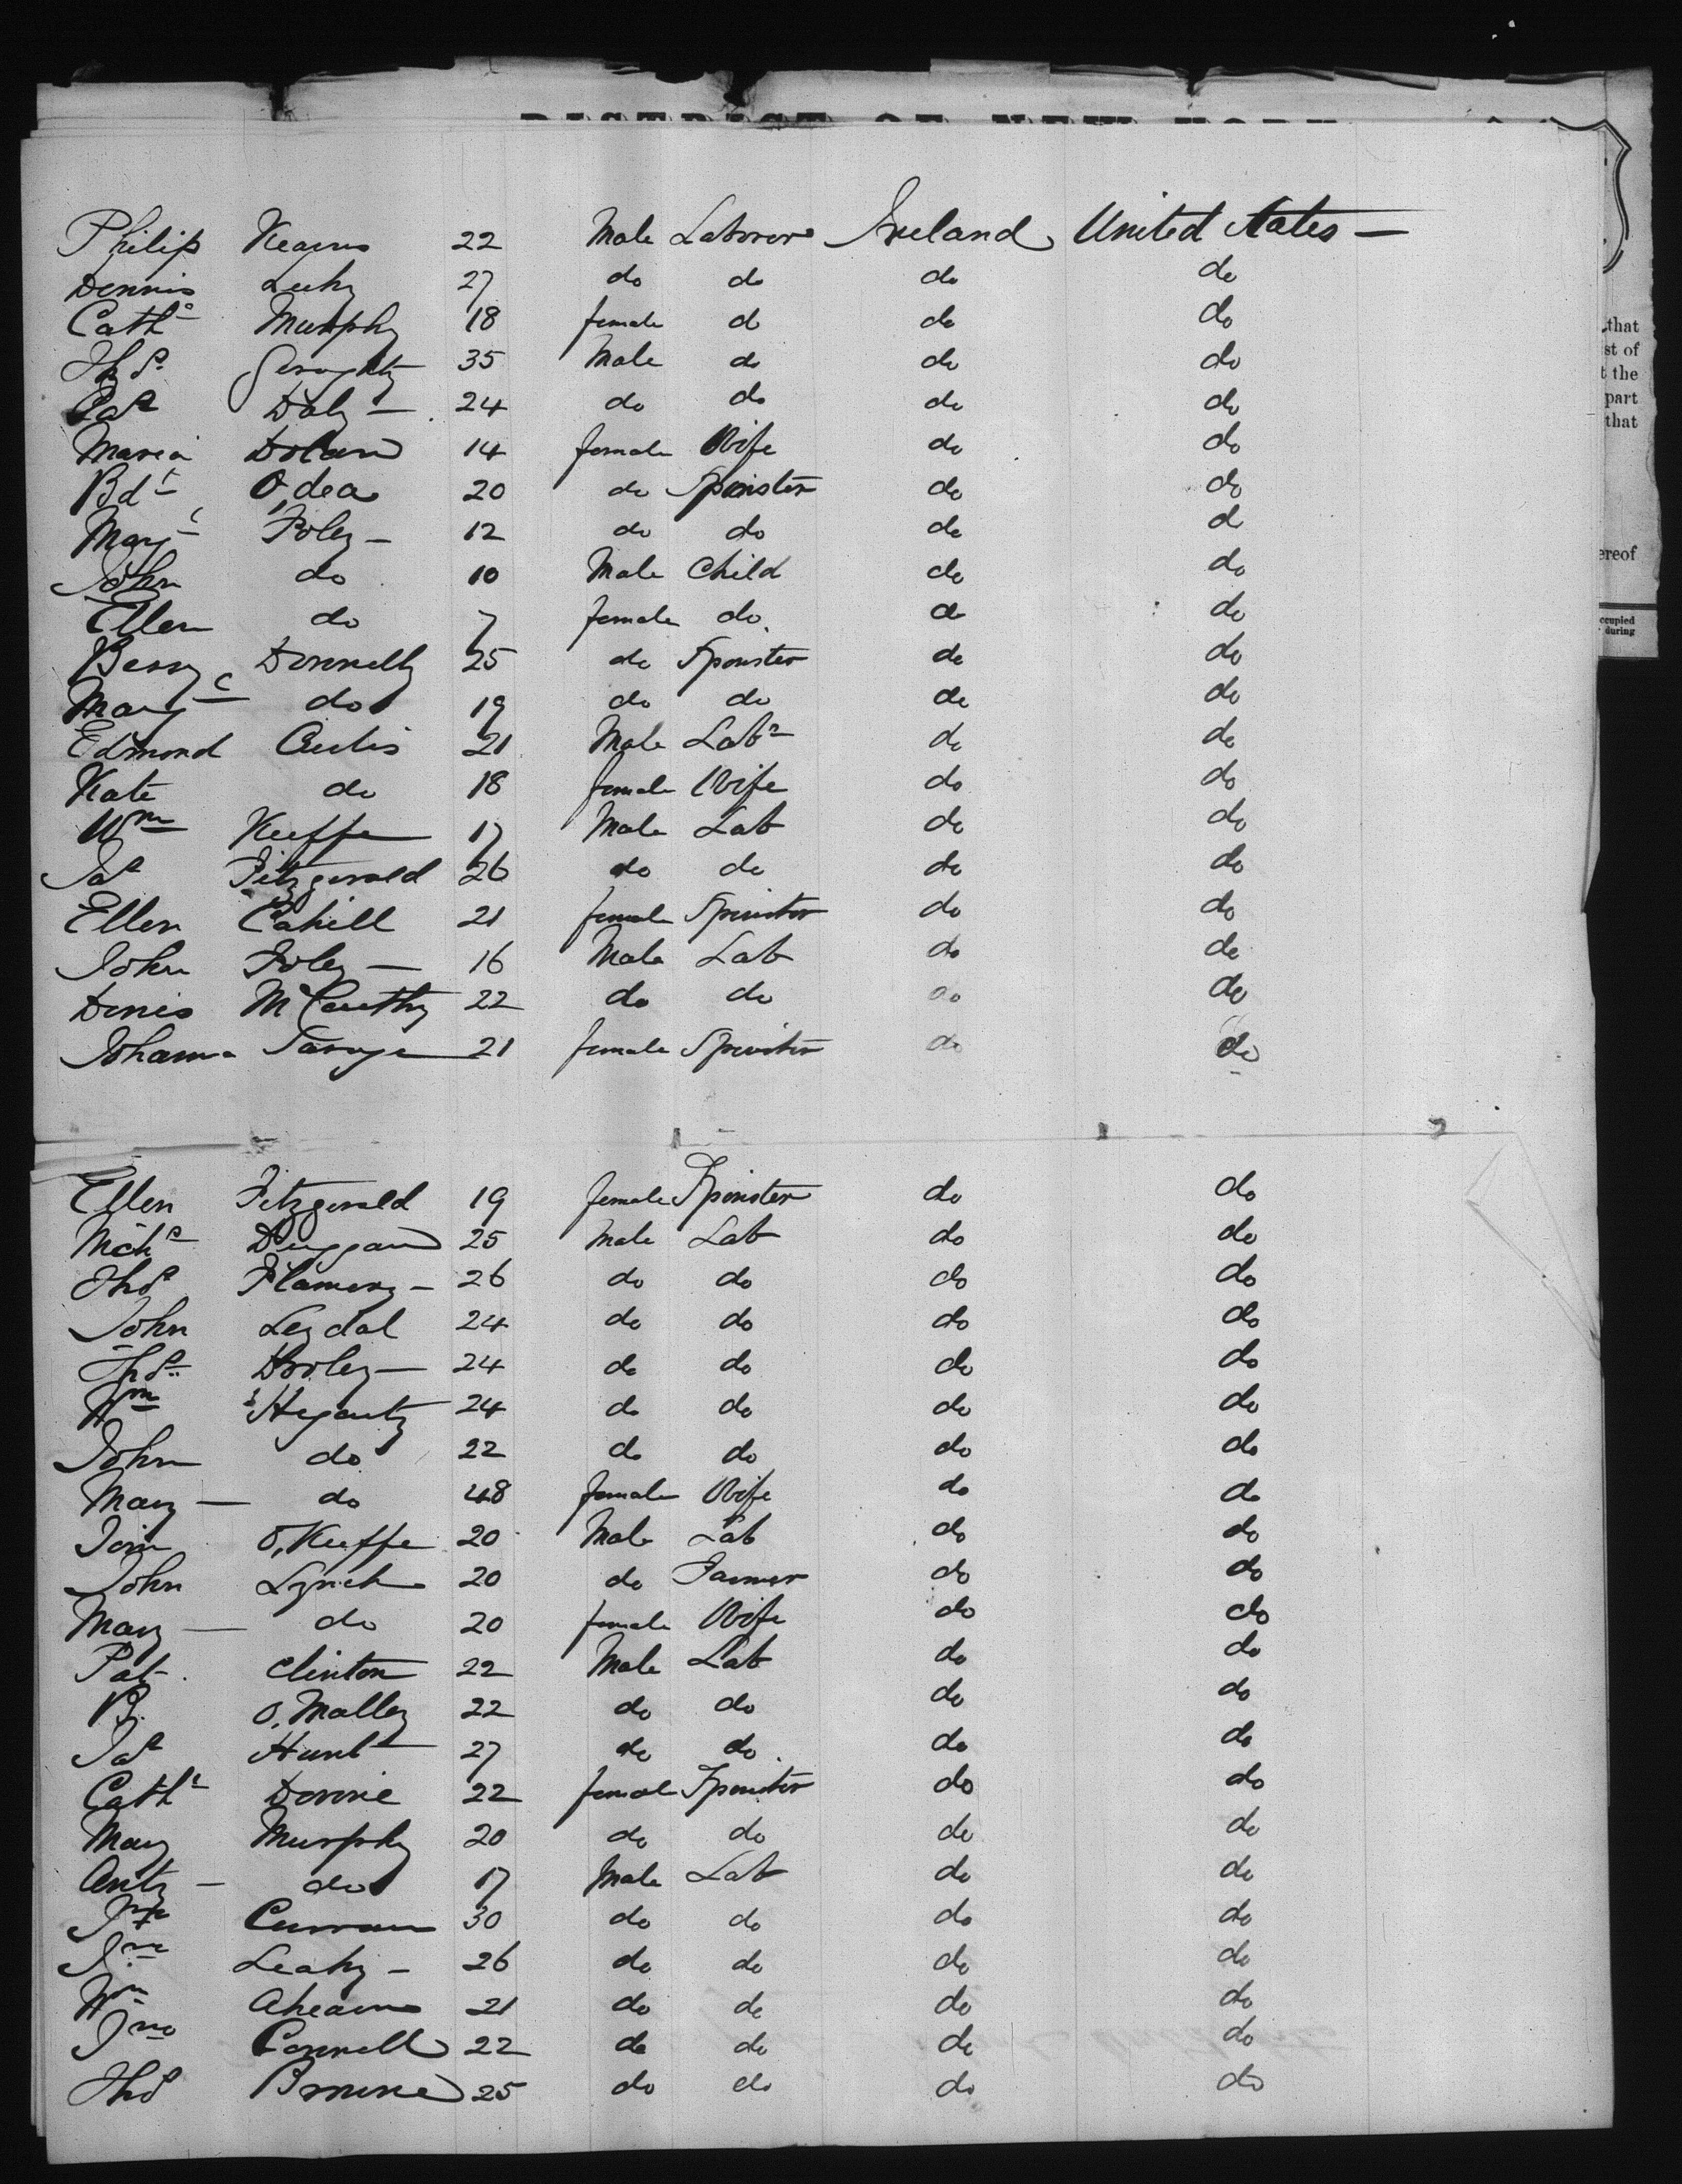 DISTRICT OF NEW YORK
Philip Kearns 22 Male Laborer Ireland United States —
Dennis Leehy 27 do do do do
Cathe Murphy 18 female do do do
Thos Geraghty 35 Male do do do
Pat Daly — 24 do do do do
Maria Dolan 14 female Wife do do
Bdt O,dea 20 do Spinster do do
Mary Foley — 12 do do do d
John do 10 Male Child do do
Ellen do 7 female do do do
Bessy Donnelly 25 do Spinster do do
Mary do 19 do do do do
Edmond Curtis 21 Male Labr do do
Kate do 18 female Wife do do
Wm Keeffe 17 Male Lab do do
Jas Fitzgerald 26 do do do do
Ellen Cahill 21 female Spinster do do
John Foley — 16 Male Lab do do
Denis McCarthy 22 do do do do
Johanna Savage 21 female Spinster do do
Ellen Fitzgerald 19 female Spinster do do
Mich Duggan 25 Male Lab do do
Thos Flamery — 26 do do do do
John Leydal 24 do do do do
Thos Dooley — 24 do do do do
Wm Hegarty 24 do do do do
John do 22 do do do do
Mary — do 48 female Wife do do
Tim O,Keeffe 20 Male Lab do do
John Lynch 20 do Farmer do do
Mary — do 20 female Wife do do
Pat Clinton 22 Male Lab do do
P. O,Malley 22 do do do do
Jas Hunt 27 do do do do
Cathe 22 female Spinster do do
Mary Murphy 20 do do do do
Anty — do 17 Male Lab do do
Curran 30 do do do do
Jno Leahy — 26 do do do do
Wm Ahearne 21 do do do do
Jno Connell 22 do do do do
Thos Browne 25 do do do do
that
st of
t the
part
that
ereof
ccupied
during